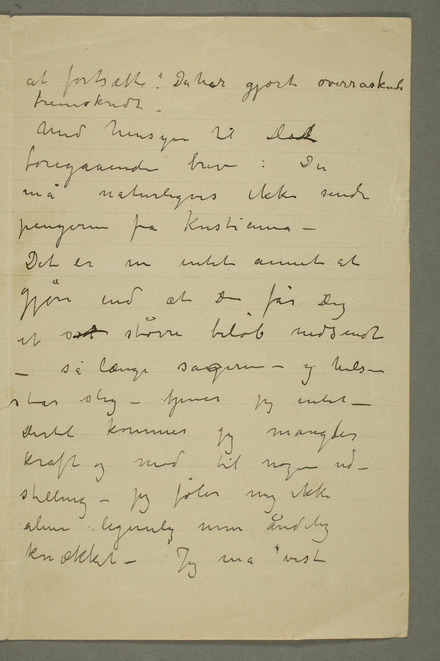 at fortsætte! Du har gjort overraskende
fremskridt –
Med hensyn til Det
foregaaende brev : Du
må naturligvis ikke sende
pengerne fra Kristiania –
Det er nu intet annet at
gjøre end at De får Dig
et større beløb nedsendt
– så længe sagerne – og helsen
står slig – tjener jeg intet –
Dertil kommer jeg mangler
kraft og mod til nogen ud–
stilling – jeg føler mig ikke
alene legemlig men åndelig
knækket – Jeg må vist